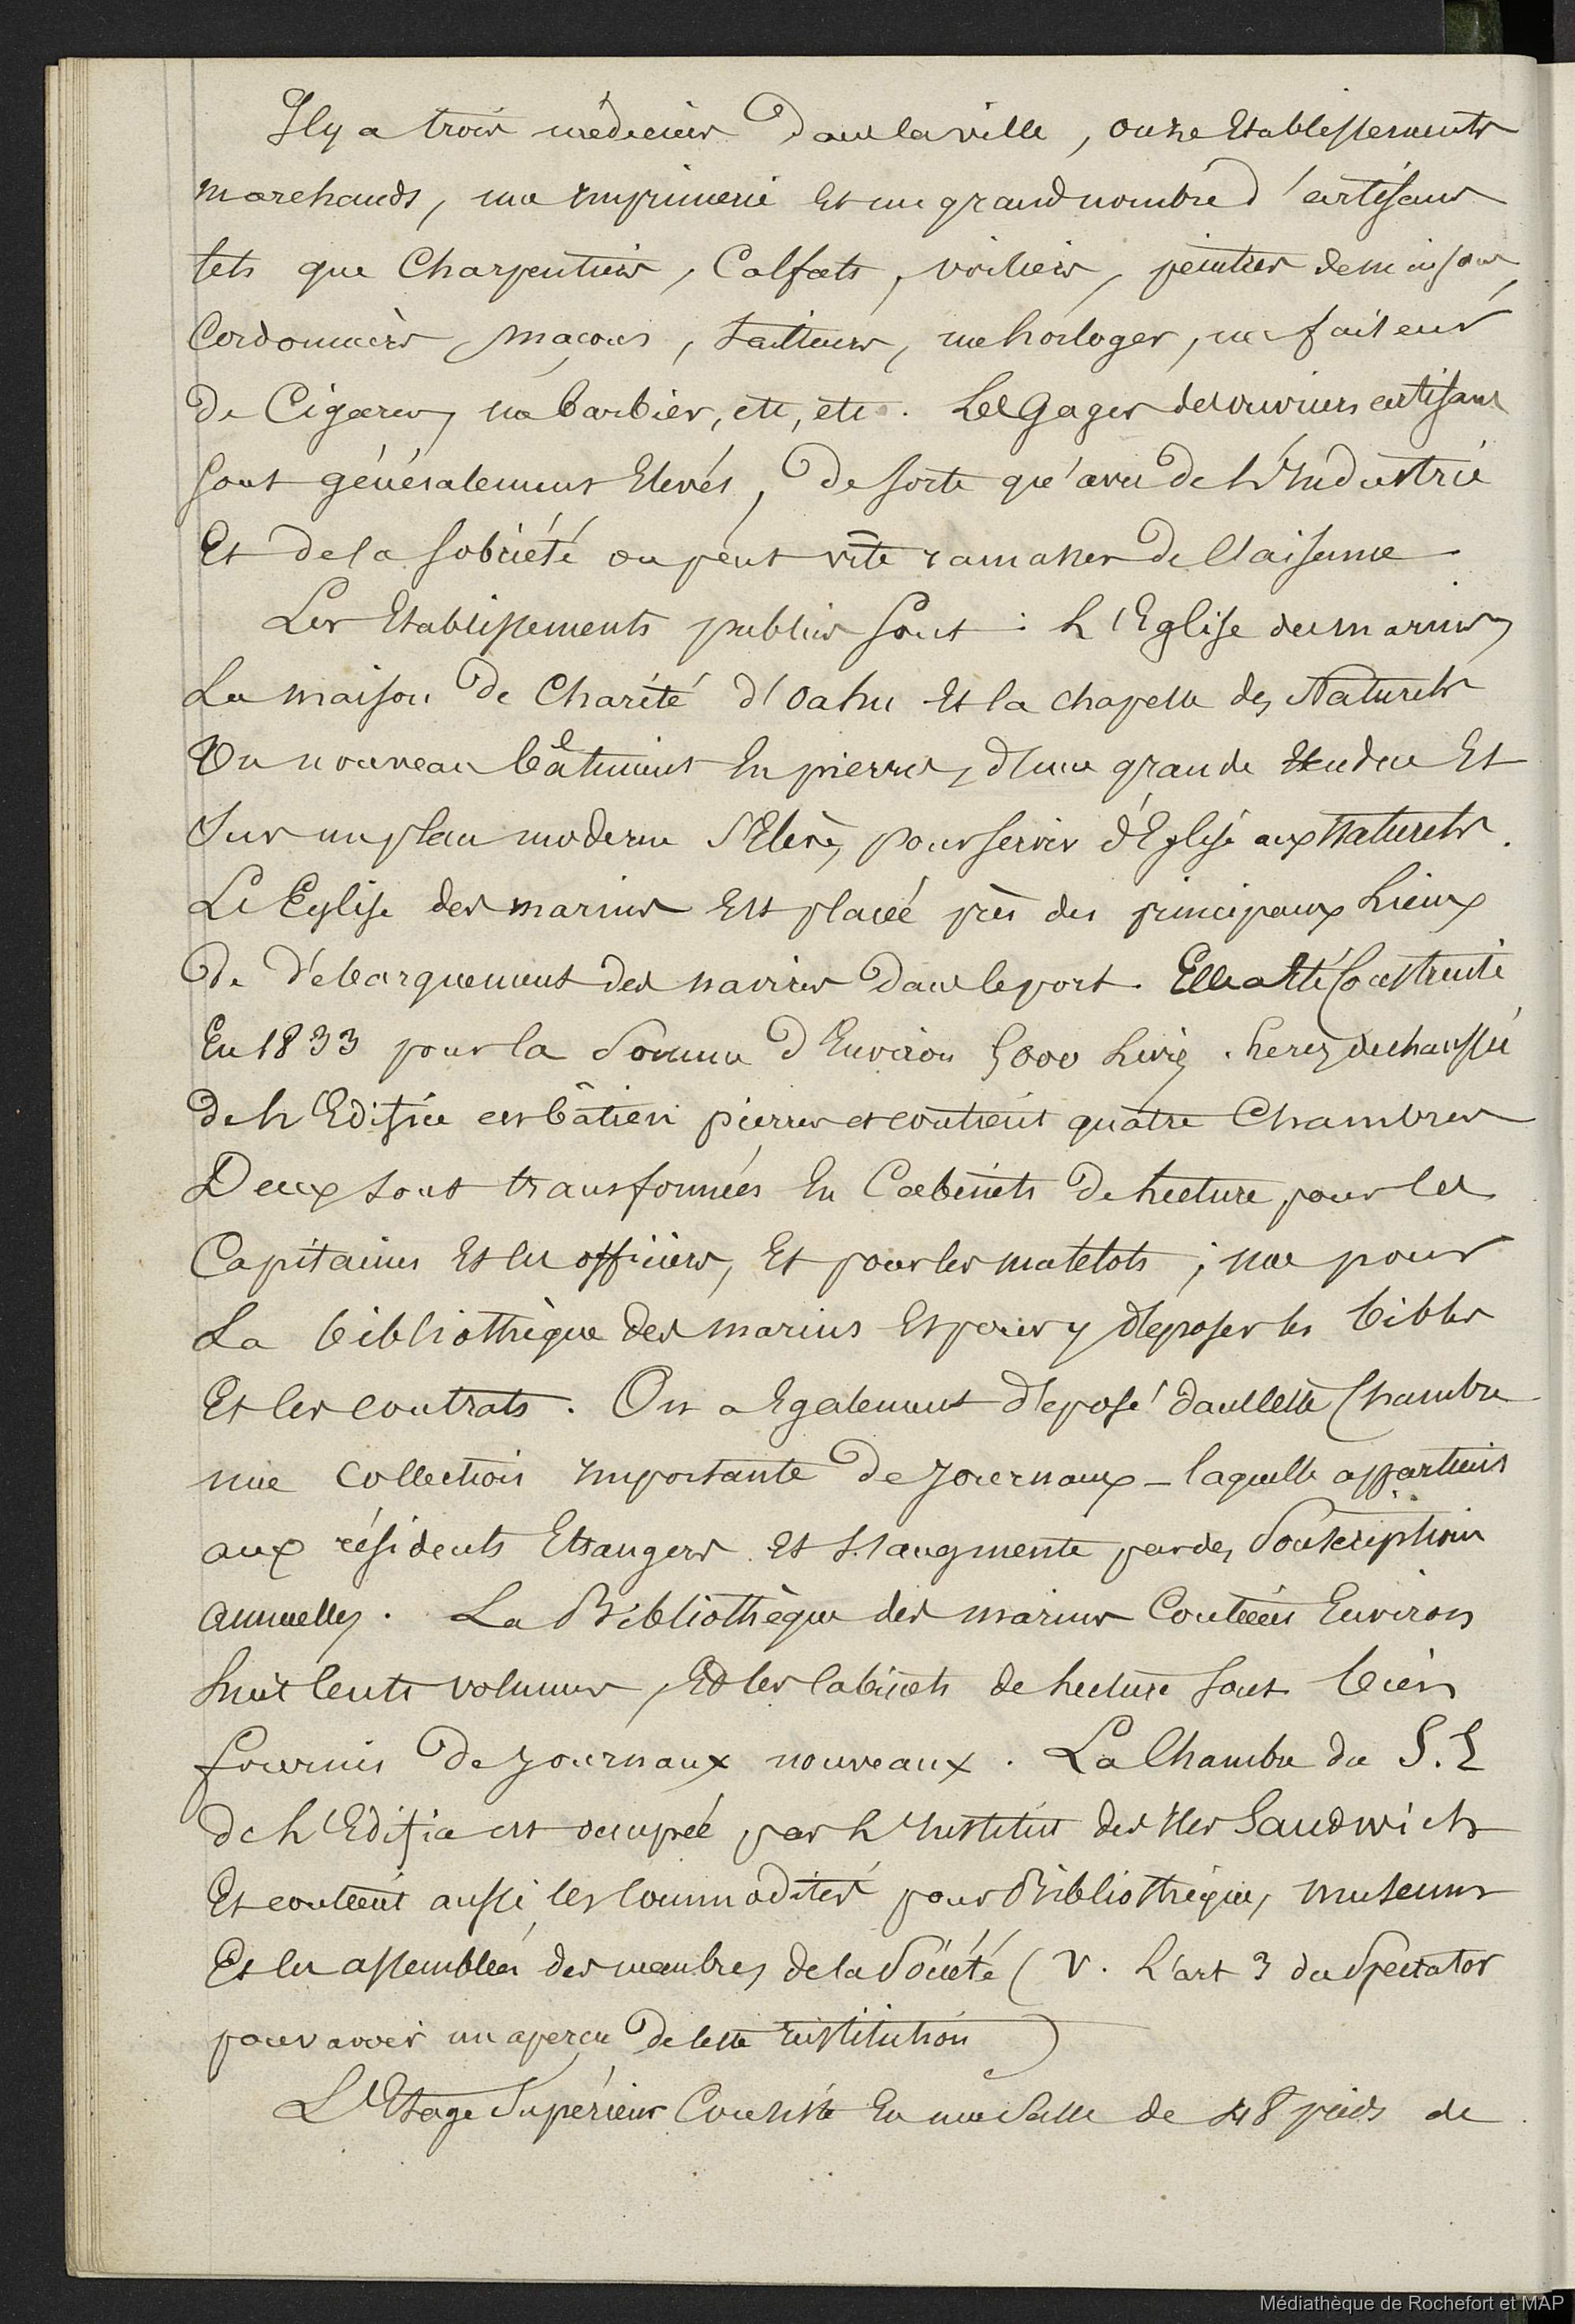 Il y a trois médecins dans la ville, onze Etablissements
marchands, une imprimerie Et un grand nombre d'artisans
tels que Charpentiers, Calfats, voiliers, peintres de maisons,
Cordonniers, maçons, tailleurs, un horloger, un faiseur
de Cigares, un barbier, etc, etc. Les Gages des ouvriers artisans
sont généralement Elevés, de sorte qu'avec de L'Industrie
Et de la sobriété on peut vite ramasser de l'aisance.
Les Etablissements publics sont : L'Eglise des marins,
La maison de Charité d'Oahu Et la chapelle des Naturels
Un nouveau bâtiment En pierres, d'une grande Etendue Et
Sur un plan moderne S'Elève, pour servir d'Eglise aux Naturels.
L'Eglise des marins Est placée près des principaux Lieux
de débarquement des navires dans le port. Elle a Eté Construite
En 1833 pour la Somme d'Environ 5000 Livres. Le rez de chaussée
de L'Edifice est bâti en pierres et contient quatre Chambres
Deux sont transformées En Cabinets de Lecture pour les
Capitaines Et les officiers, Et pour les matelots ; une pour
La bibliothèque des marins Et pour y déposer les bibles
Et les contrats. On a Egalement déposé dans cette Chambre
une Collection importante de journaux - laquelle appartient
aux résidents Etrangers Et s'augmente par des Souscriptions
annuelles. La Bibliothèque des marins Contient Environ
huit Cents volumes, Et les Cabinets de Lecture sont bien
fournis de journaux nouveaux. La Chambre du S. E
de L'Edifice est occupée par L'Institut des Iles Sandwich
Et contient aussi les Commodités pour Bibliothèque, museums
Et les assemblées des membres de la Société ( V. L'art 3 du Spectator
pour avoir un aperçu de cette institution )
L'Etage Supérieur Consiste En une Salle de 48 pieds de
Médiathèque de Rochefort et MAP